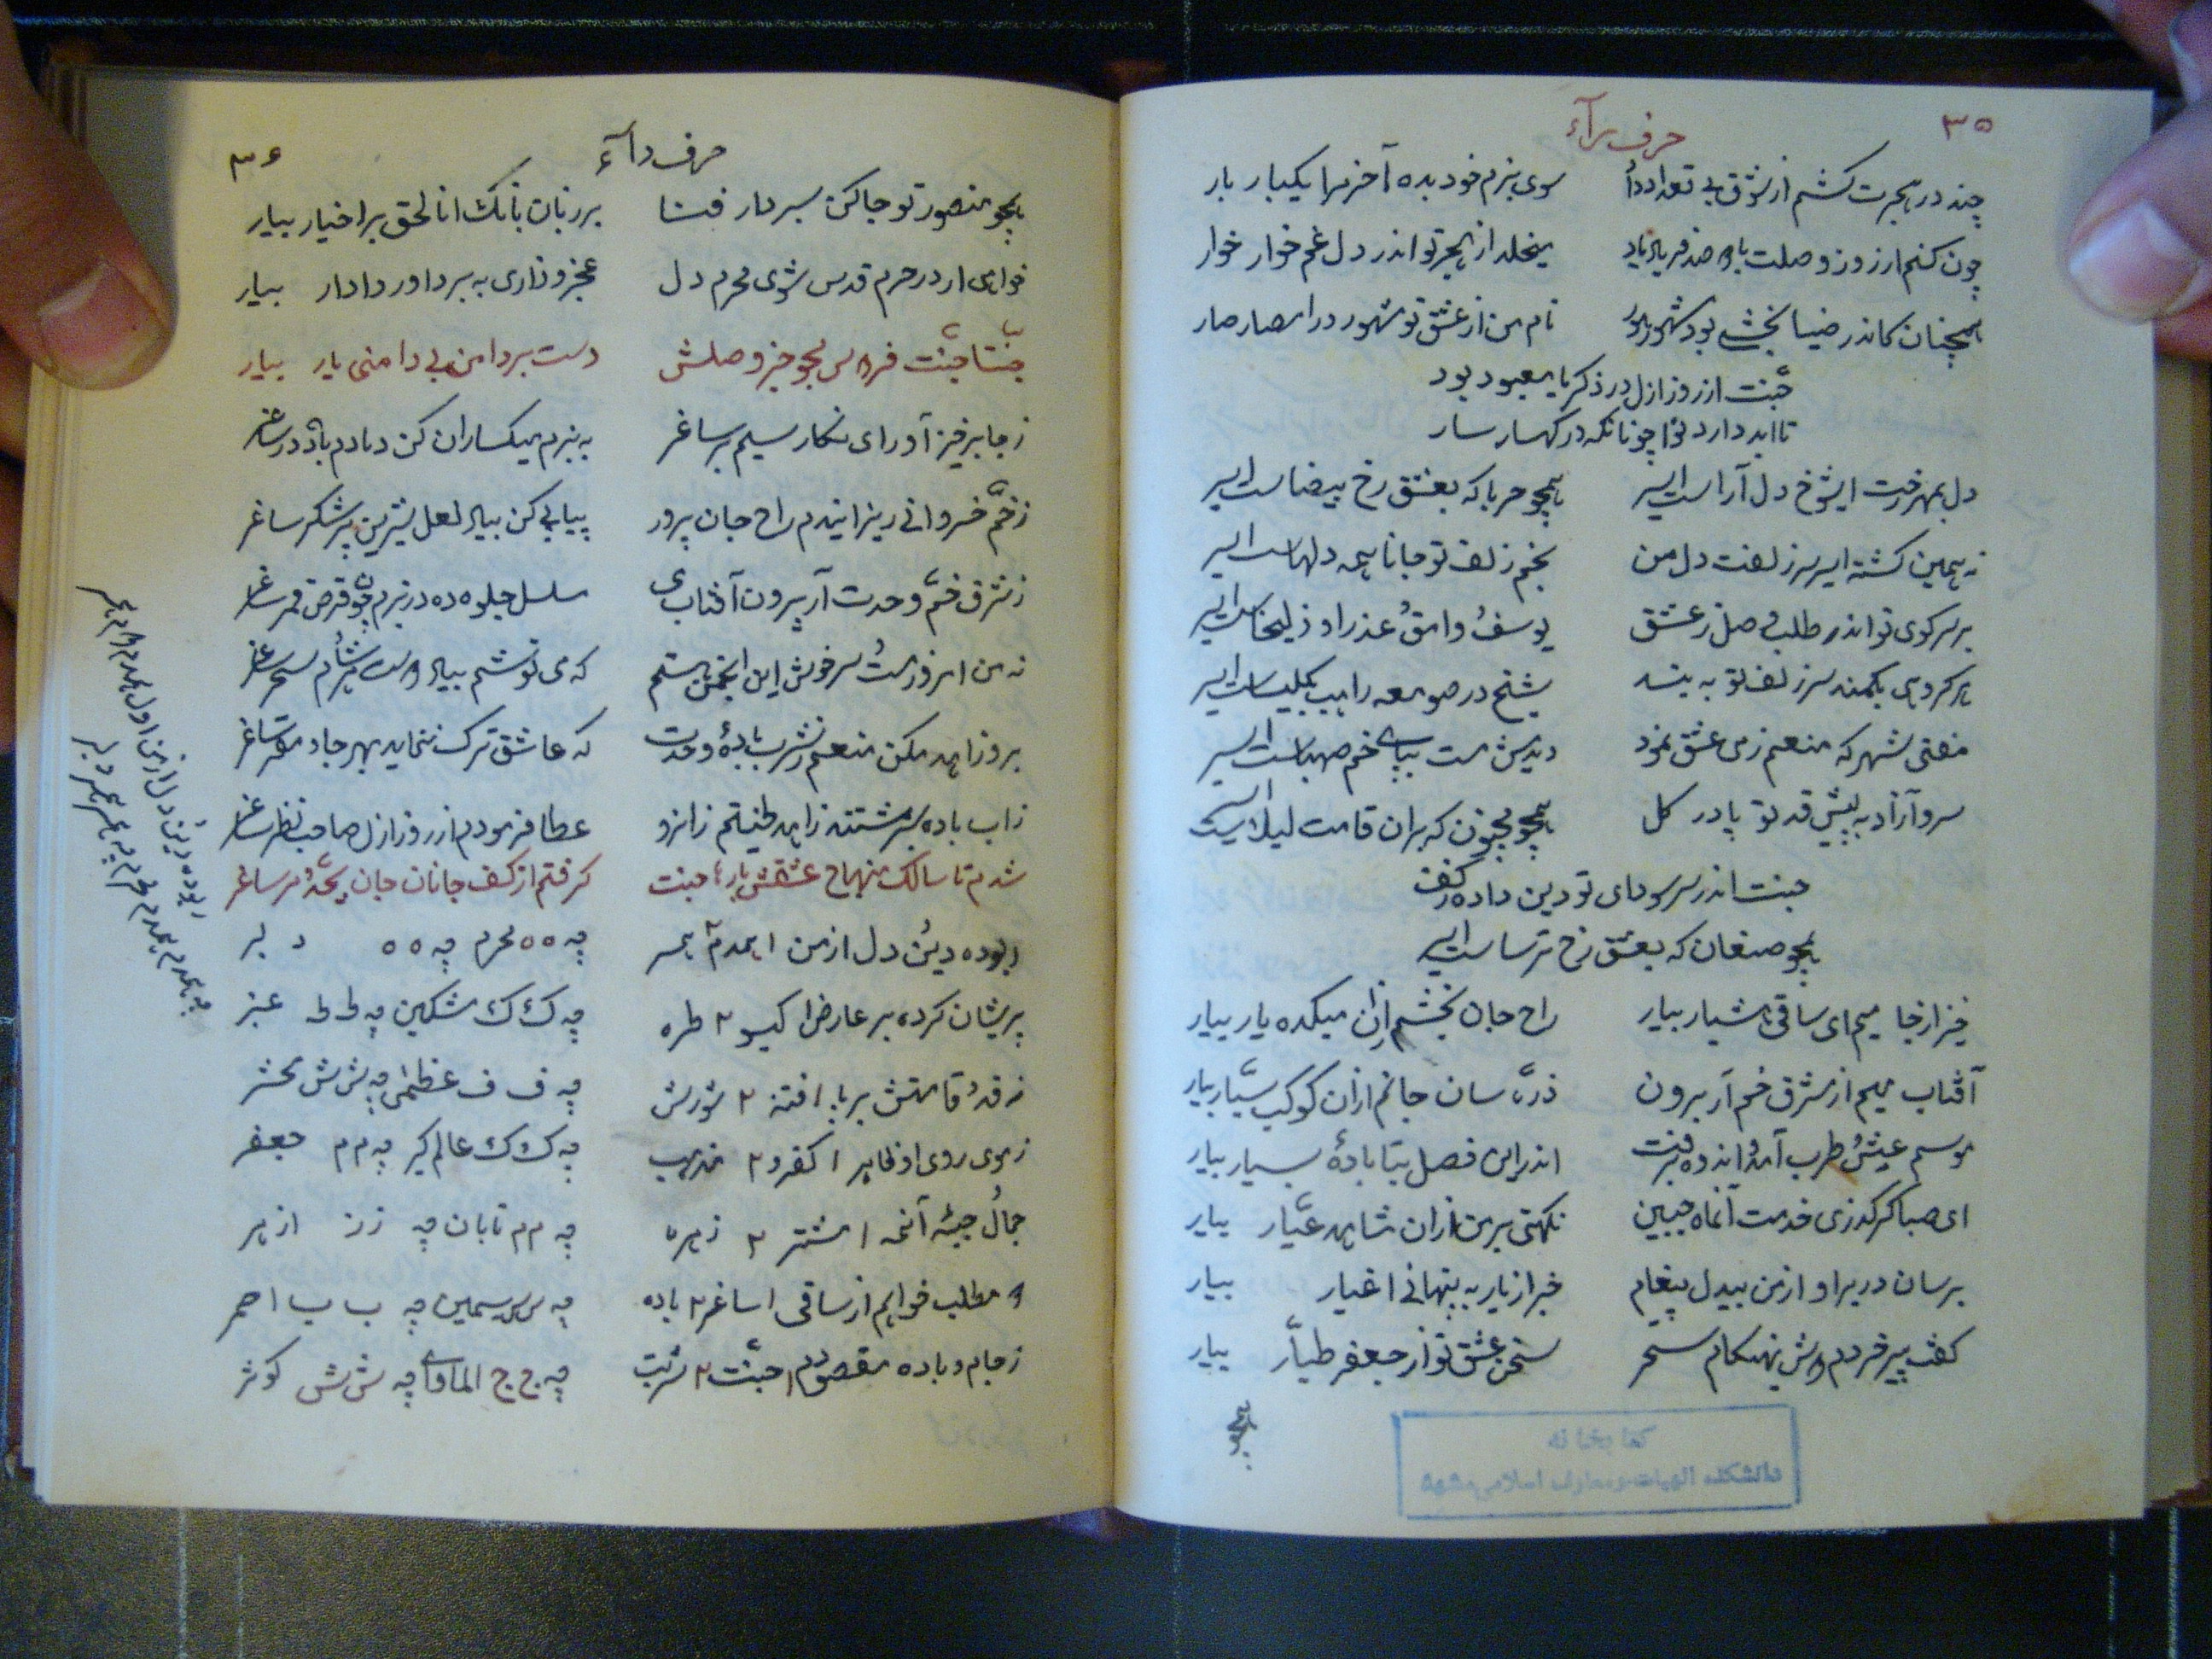 ۳۵
حرف رآء
چند در هجرت کشم از شوق بی تعداد دأ سوی بزم خود بده آخر مرا یکبار بار
چون کنم ارزوز وصلت با صد فریاد یاد میخلد از هجر تو اندر دل غم خوار خوار
همچنان کاندر ضیا بخشی بود مشهور هور نام من از عشق تو مشهور در امصار صار
جنّت از روز ازل در ذکر یا معبود بود
تا ابد دارد نوا چونانکه در کهسار سار
دل بمهر رخت ایشوخ دل آراست اسیر همچو حربا که بعشق رخ بیضاست اسیر
نه همین کشته اسیر سر زلفت دل من بخم زلف تو جانا همه دلهاست اسیر
بر سر کوی تو اندر طلب وصل ز عشق یوسفُ وامقُ عذرا و زلیخاست اسیر
هر کروهی بکمند سر زلف تو به بند شیخ در صومعه راهب بکلیساست اسیر
مفتی شهر که منعم ز می عشق نمود دیدمش مست بپای خم صهباست اسیر
سرو آزاد به پیش قد تو پا در کل همچو مجنون که بران قامت لیلاست اسیر
جنت اندر سر سودای تو دین داده ز کف
همچو صنعان که بعشق رخ ترساست اسیر
خیز از جا میم ای ساقی هشیار بیار راح جان بخشم از ان میکده یار بیار
آفتاب میم از مشرق خم آر برون ذرّه سان جانم از ان کوکب سیّار بیار
موسم عیشُ طرب آمدُ اندوه برفت اندر این فصل بتا بادهٔ بسیار بیار
ای صبا کر کذری خدمت آنماه جبین نکهتی بر من از ان شاهد عیّار بیار
برسان در بر او از من بیدل پیغام خبر از یار به پنهانی اغیار بیار
کفت پیر خردم دوش بهنکام سحر سخن عشق تو از جعفر طیّار بیار
همچو
کتابخانه
دانشکده الهیات و معارف اسلامی مشهد
۳۶
حرف رآء
همچو منصور تو جا کن بسر دار فنا بر زبان بانک انا لحق بر اخیار بیار
خواهی ار در حرم قدس شوی محرم دل عجز و زاری به بر داور دادار بیار
جنّتا جنّت فردوس مجو جز وصلش دست بر دامن بی دامنی یار بیار
ز جا برخیز آور ای نکار سیم بر ساغر به بزم میکساران کن دمادم باده در ساغر
ز خمّ خسروانی ریز ایندم راح جان پرور پیاپی کن بیاد لعل شیرین پر شکر ساغر
ز شرق خمّ وحدت آر بیرون آفتاب می سلسل جلوه ده در بزم چون قرص قمر ساغر
نه من امروز مستُ سرخوش این انجمن هستم که می نوشم بیاد دوست هر شام سحر ساغر
برو زاهد مکن منعم ز شرب بادهٔ وحدت که عاشق ترک ننماید بهر جاد
ز اب باده بسرشتند زاهد طینتم زانرو عطا فرمودم از روز ازل صاحب نظر ساغر
شدم تا سالک منهاج عشقش بارها جنت کرفتم از کف جانان جان
ربوده دینُ دل از من ا همدم ۲ همسر چه ه ه محرم چه ه ه د لبر
پریشان کرده بر عارض ا کیسو ۲ طره چه ک ک مشکین چه ط ط عنبر
ز قدُ قامتش بر پا ا فتنه ۲ شورش چه ف ف عظمی چه ش ش محشر
ز موی روی او ظاهر ا کفر و ۲ مذهب چه ک ک عالم کیر چه م م جعفر
جمالُ جبهٔ آنمه ا مشتر ۲ زهره چه م م تابان چه ز ز ازهر
مطلب خواهم از ساقی ا ساغر ۲ باده چه س س سیمین چه ب ب احمر
ز جام و باده مقصودم ا جنّت ۲ شربت چه ج ج الماوی چه ش ش کوثر
ربوده دین دل از من اول همدم دوم همسر
چه همدم همدم محرم چه همسر همسر دلبر